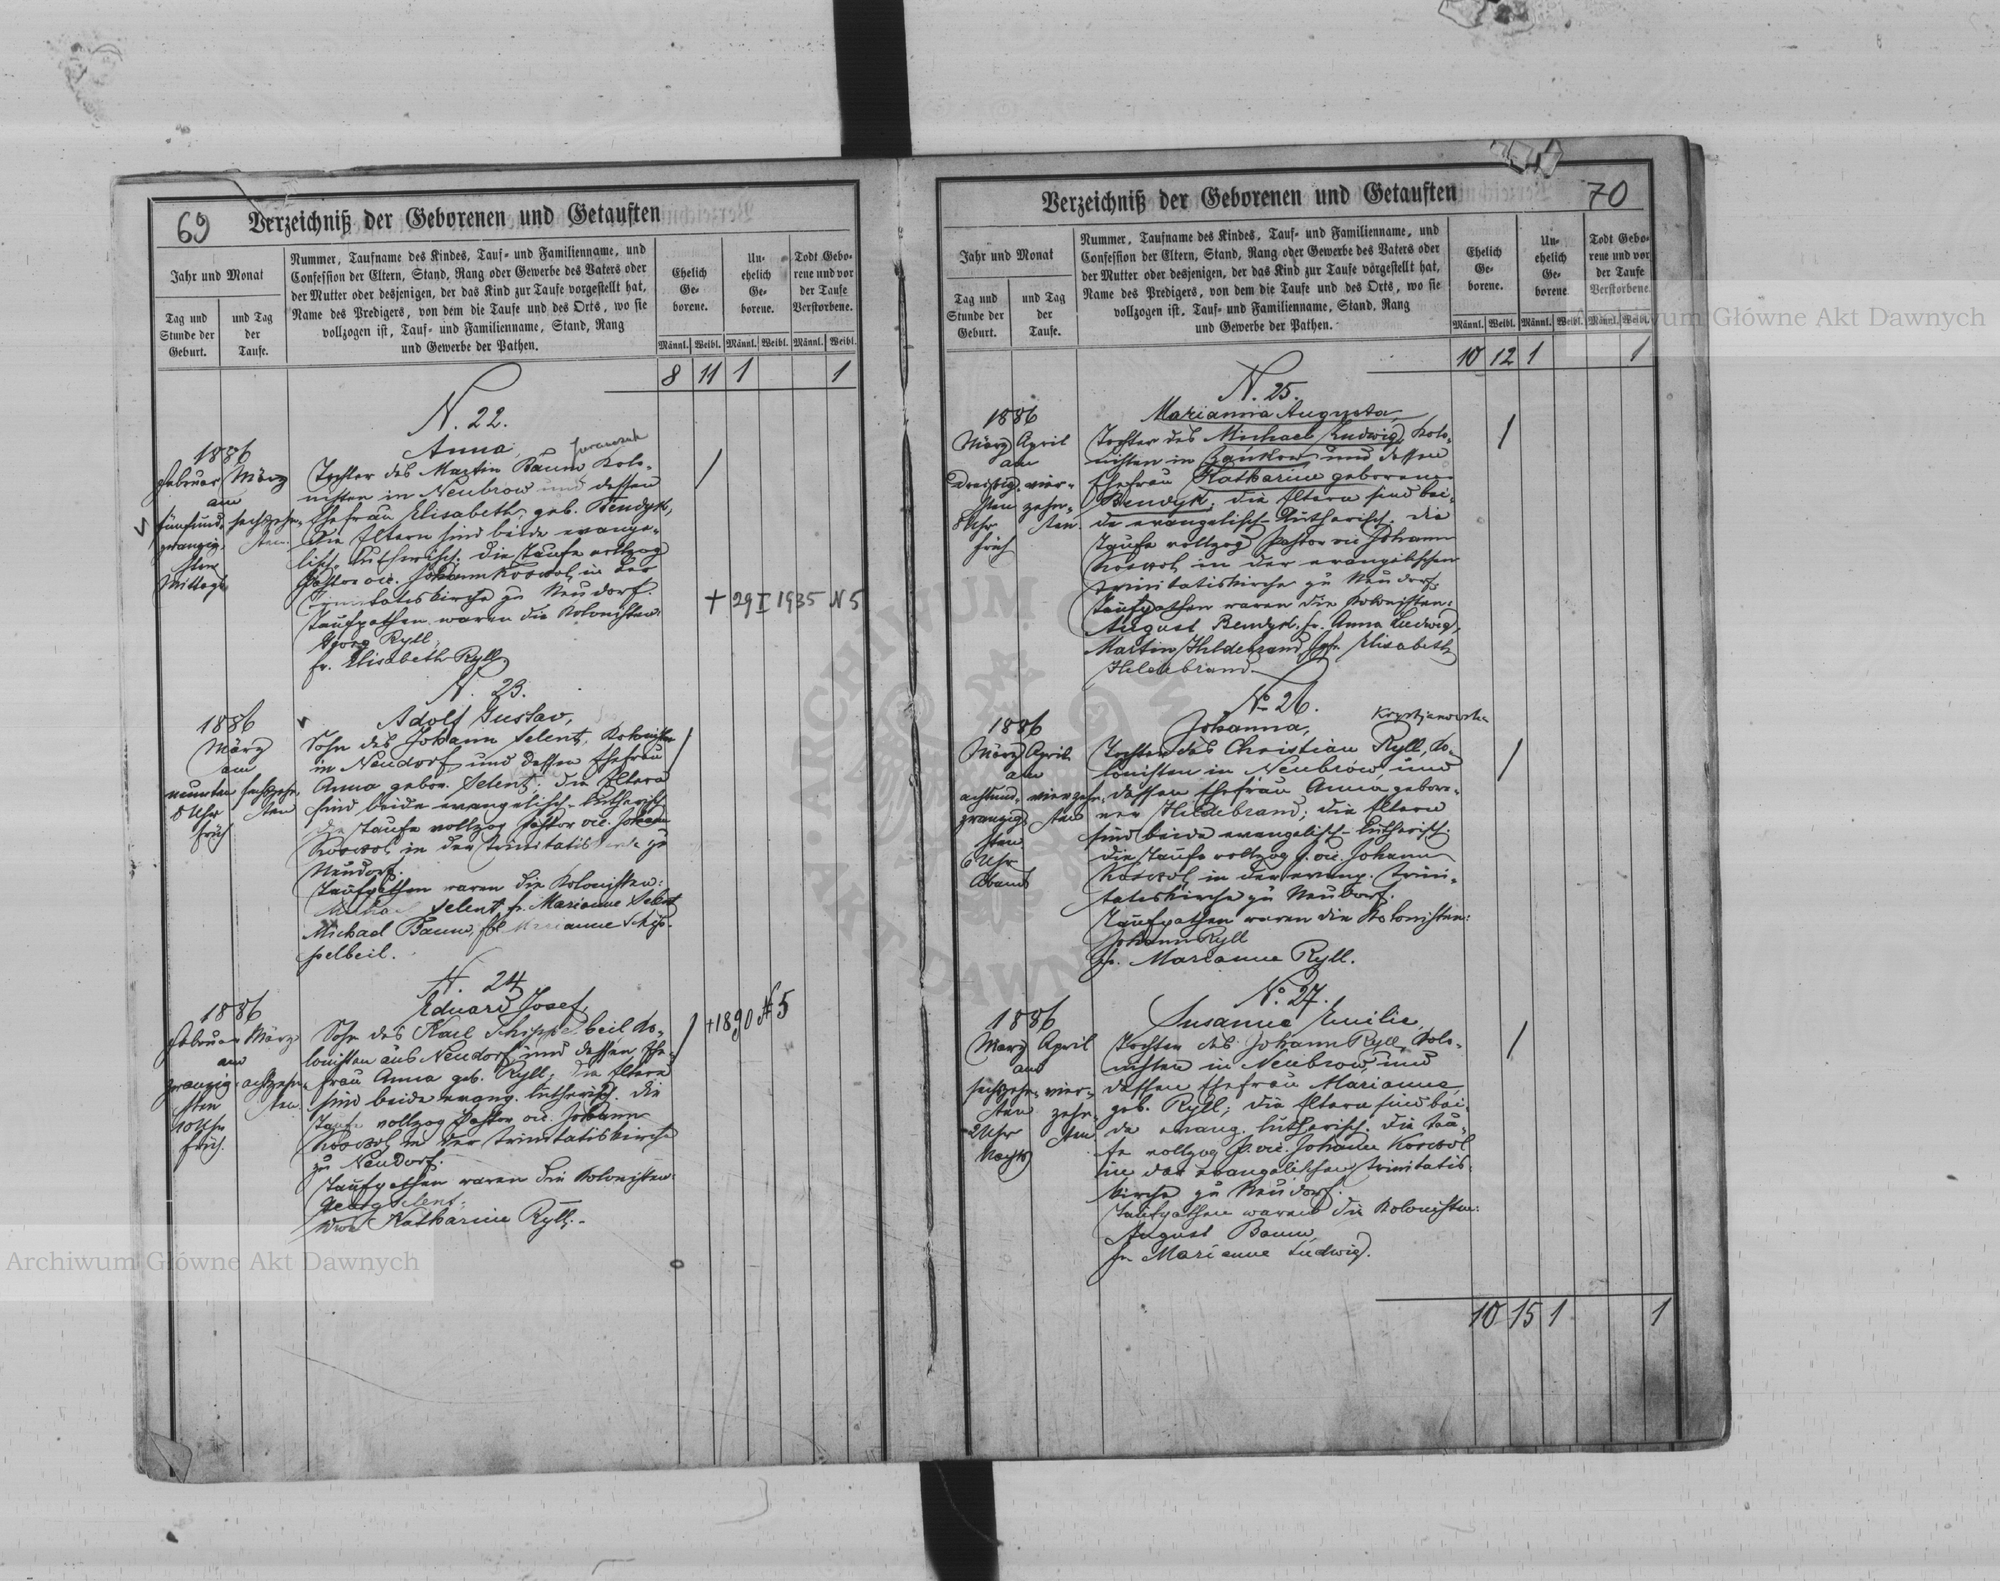 69
Verzeichniß der Geborenen und Getauften
Jahr und Monat
Tag und
Stunde der
Geburt.
und Tag
der
Taufe.
Nummer, Taufname des Kindes, Tauf- und Familienname, und
Confession der Eltern, Stand, Rang oder Gewerbe des Vaters oder
der Mutter oder desjenigen, der das Kind zur Taufe vorgestellt hat,
Name des Predigers, von dem die Taufe und des Orts, wo sie
vollzogen ist, Tauf- und Familienname, Stand, Rang
und Gewerbe der Pathen.
Ehelich
Ge-
borene.
Un-
ehelich
Ge-
borene.
Todt Gebo-
rene und vor
der Taufe
Verstorbene.
Männl. Weibl. Männl. Weibl. Männl. Weibl.
8 11 1 1
N. 22.
1886
Februar März
am
fünfund- sechszehn-
zwanzig- sten.
sten
Mittags
Anna
Tochter des Martin Baum Kolo-
nisten in Neubrow und dessen
Ehefrau Elisabeth geb. Bendyk,
die Eltern sind beide evange-
lisch-lutherisch. Die Taufe vollzog
Pastor vic. Johann Koswol in der
Trinitatiskirche zu Neudorf.
Taufpathen waren die Kolonisten:
Georg Ryll,
fr. Elisabeth Ryll
+ 29 I 1935 N 5
N. 23.
1886
März
am
neunten sechszehn-
8 Uhr sten
früh
Adolf Gustav,
Sohn des Johann Selent, Kolonisten
in Neudorf und dessen Ehefrau
Anna gebor. Selent. Die Eltern
sind beide evangelisch-lutherisch
die Taufe vollzog Pastor vic. Johann
Koswol in der Trinitatiskirche zu
Neudorf.
Taufpathen waren die Kolonisten:
Michael Selent, fr. Marianne Selent
Michael Baum, Marianne Schip-
pelbeil.
N. 24
1886
Februar März
am
zwanzig- achtzehn-
sten sten
10 Uhr
früh.
Eduard Josef,
Sohn des Karl Schippelbeil Ko-
lonisten aus Neudorf und dessen Ehe-
frau Anna geb. Ryll; die Eltern
sind beide evang. lutherisch. Die
Taufe vollzog Pastor vic. Johann
Koswol in der Trinitatiskirche
zu Neudorf.
Taufpathen waren die Kolonisten:
Georg Selent,
Katharine Ryll.
+1890 N 5
Verzeichniß der Geborenen und Getauften
70
Jahr und Monat
Tag und
Stunde der
Geburt.
und Tag
der
Taufe.
Nummer, Taufname des Kindes, Tauf- und Familienname, und
Confession der Eltern, Stand, Rang oder Gewerbe des Vaters oder
der Mutter oder desjenigen, der das Kind zur Taufe vorgestellt hat,
Name des Predigers, von dem die Taufe und des Orts, wo sie
vollzogen ist, Tauf- und Familienname, Stand, Rang
und Gewerbe der Pathen.
Ehelich
Ge-
borene.
Un-
ehelich
Ge-
borene
Todt Gebo-
rene und vor
der Taufe
Verstorbene.
Männl. Weibl. Männl. Weibl. Männl. Weibl.
10 12 1 1
N. 25.
1886
März April
am
dreißig- vier-
sten zehn-
8 Uhr ten.
früh
Marianna Augusta,
Tochter des Michael Ludwig, Kolo-
nisten in Zankow und dessen
Ehefrau Katharine geborene
Bendyk; die Eltern sind bei-
de evangelisch-lutherisch. Die
Taufe vollzog Pastor vic Johann
Koswol in der evangelischen
Trinitatiskirche zu Neudorf.
Taufpathen waren die Kolonisten:
August Bendyk, fr. Anna Ludwig,
Martin Hildebrand, Elisabeth
Hildebrand.
No 26.
Krystjanowska
1886
März April
am
achtund- vierzehn-
zwanzig- ten
sten
6 Uhr
Abends
Johanna,
Tochter des Christian Ryll, Ko-
lonisten in Neubrow, und
dessen Ehefrau Anna gebore-
nen Hildebrand; die Eltern
sind beide evangelisch-lutherisch.
Die Taufe vollzog P. vic. Johann
Koswol in der evang. Trini-
tatiskirche zu Neudorf.
Taufpathen waren die Kolonisten:
Johann Ryll
fr. Marianne Ryll.
No. 27.
1886
März April
am
sechszehn- vier-
ten zehn-
2 Uhr ten
Nachts
Susanne Emilie,
Tochter des Johann Ryll, Kolo-
nisten in Neubrow, und
dessen Ehefrau Marianne,
geb. Ryll; die Eltern sind bei-
de evang. lutherisch. Die Tau-
fe vollzog P. vic. Johann Koswol
in der evangelischen Trinitatis-
kirche zu Neudorf.
Taufpathen waren die Kolonisten:
August Baum,
fr. Marianne Ludwig.
10 15 1 1
Archiwum Główne Akt Dawnych
Archiwum Główne Akt Dawnych